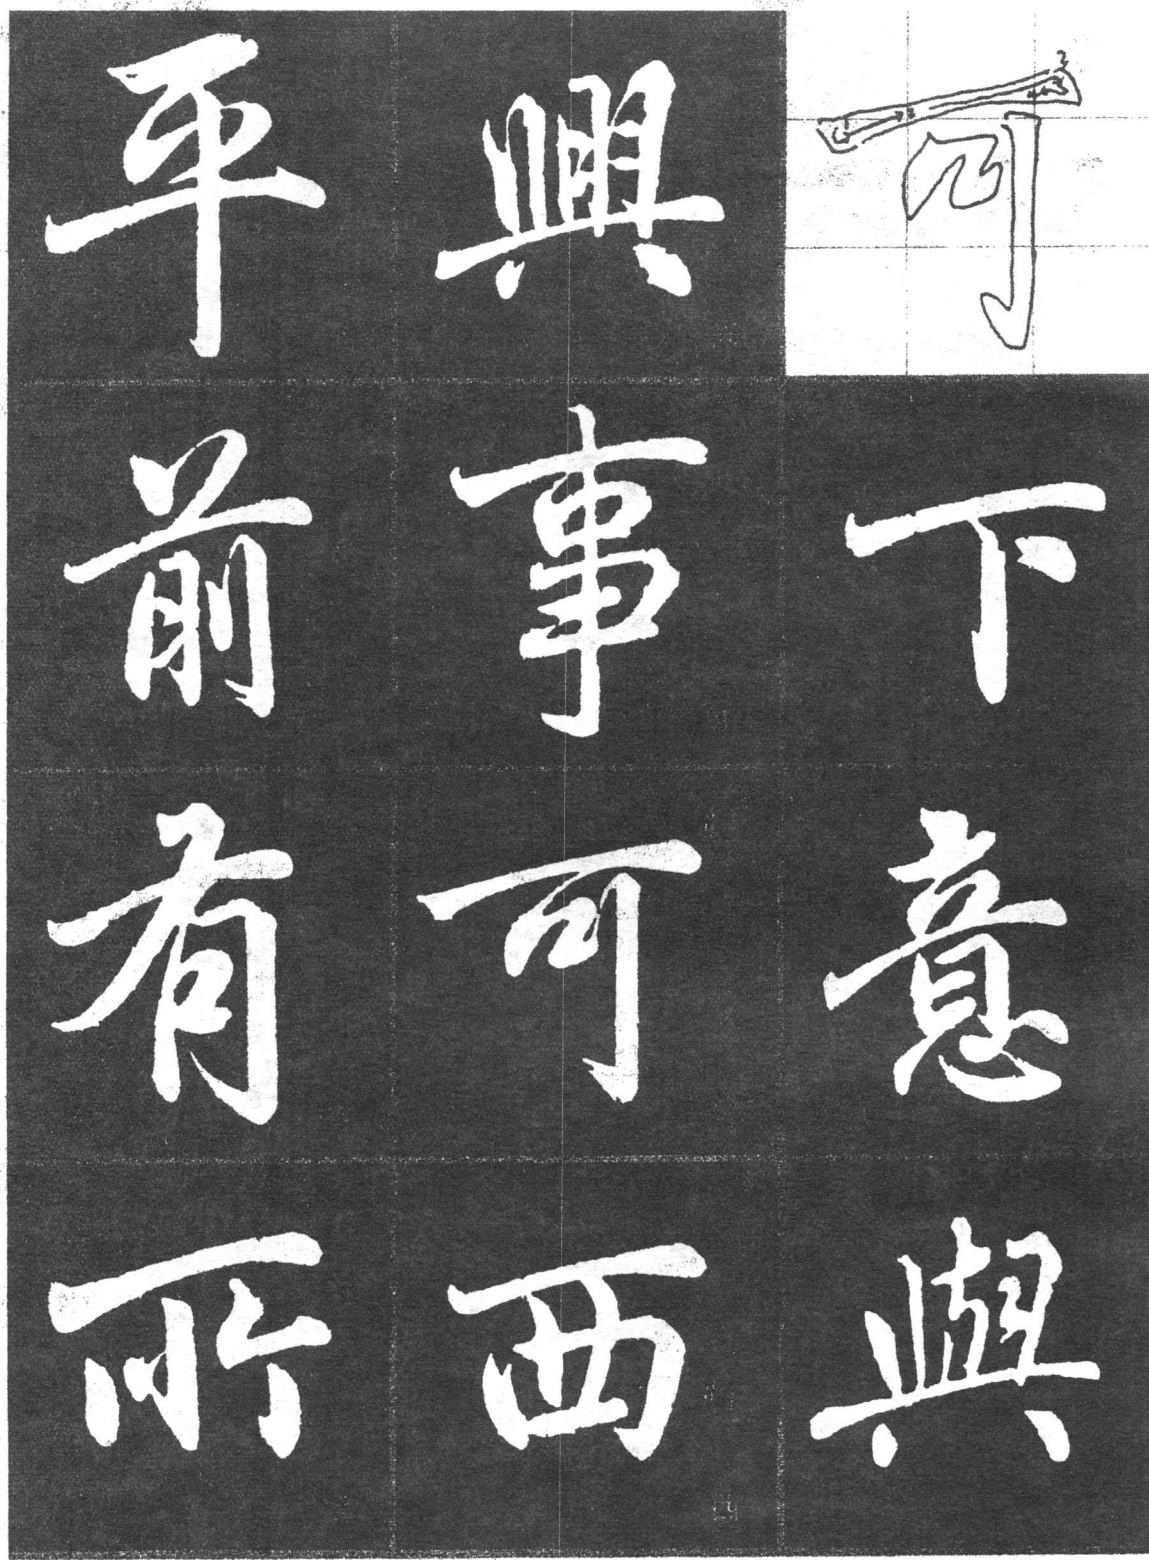 可下意與
興事可西
平前有所